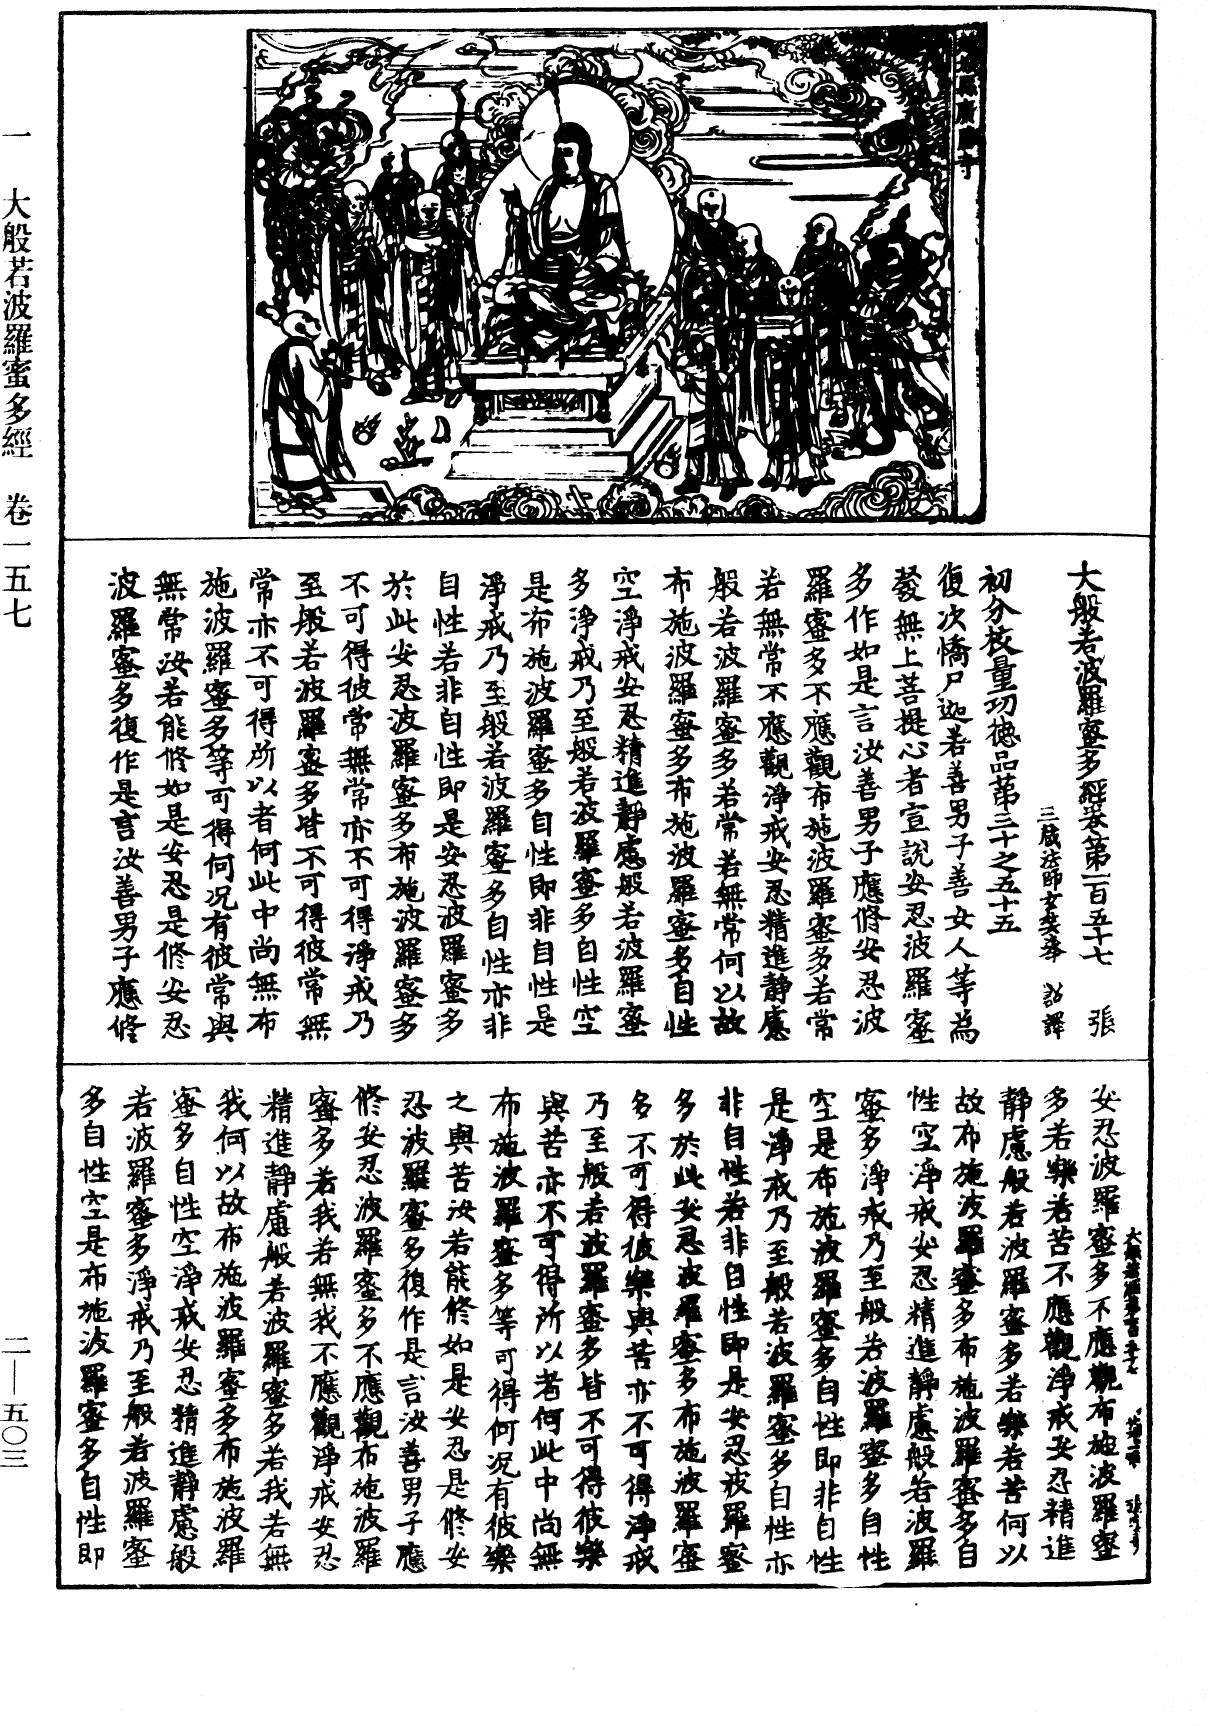 趙城縣廣勝寺
大般若波羅蜜多經卷第一百五十七 張
三藏法師玄奘奉 詔譯
初分校量功德品第三十之五十五
復次憍尸迦若善男子善女人等為
發無上菩提心者宣說安忍波羅蜜
多作如是言汝善男子應修安忍波
羅蜜多不應觀布施波羅蜜多若常
若無常不應觀淨戒安忍精進靜慮
般若波羅蜜多若常若無常何以故
布施波羅蜜多布施波羅蜜多自性
空淨戒安忍精進靜慮般若波羅蜜
多淨戒乃至般若波羅蜜多自性空
是布施波羅蜜多自性即非自性是
淨戒乃至般若波羅蜜多自性亦非
自性若非自性即是安忍波羅蜜多
於此安忍波羅蜜多布施波羅蜜多
不可得彼常無常亦不可得淨戒乃
至般若波羅蜜多皆不可得彼常無
常亦不可得所以者何此中尚無布
施波羅蜜多等可得何況有彼常與
無常汝若能修如是安忍是修安忍
波羅蜜多復作是言汝善男子應修
安忍波羅蜜多不應觀布施波羅蜜
多若樂若苦不應觀淨戒安忍精進
靜慮般若波羅蜜多若樂若苦何以
故布施波羅蜜多布施波羅蜜多自
性空淨戒安忍精進靜慮般若波羅
蜜多淨戒乃至般若波羅蜜多自性
空是布施波羅蜜多自性即非自性
是淨戒乃至般若波羅蜜多自性亦
非自性若非自性即是安忍波羅蜜
多於此安忍波羅蜜多布施波羅蜜
多不可得彼樂與苦亦不可得淨戒
乃至般若波羅蜜多皆不可得彼樂
與苦亦不可得所以者何此中尚無
布施波羅蜜多等可得何況有彼樂
之與苦汝若能修如是安忍是修安
忍波羅蜜多復作是言汝善男子應
修安忍波羅蜜多不應觀布施波羅
蜜多若我若無我不應觀淨戒安忍
精進靜慮般若波羅蜜多若我若無
我何以故布施波羅蜜多布施波羅
蜜多自性空淨戒安忍精進靜慮般
若波羅蜜多淨戒乃至般若波羅蜜
多自性空是布施波羅蜜多自性即
一 大般若波羅蜜多經 卷一五七
二—五〇三